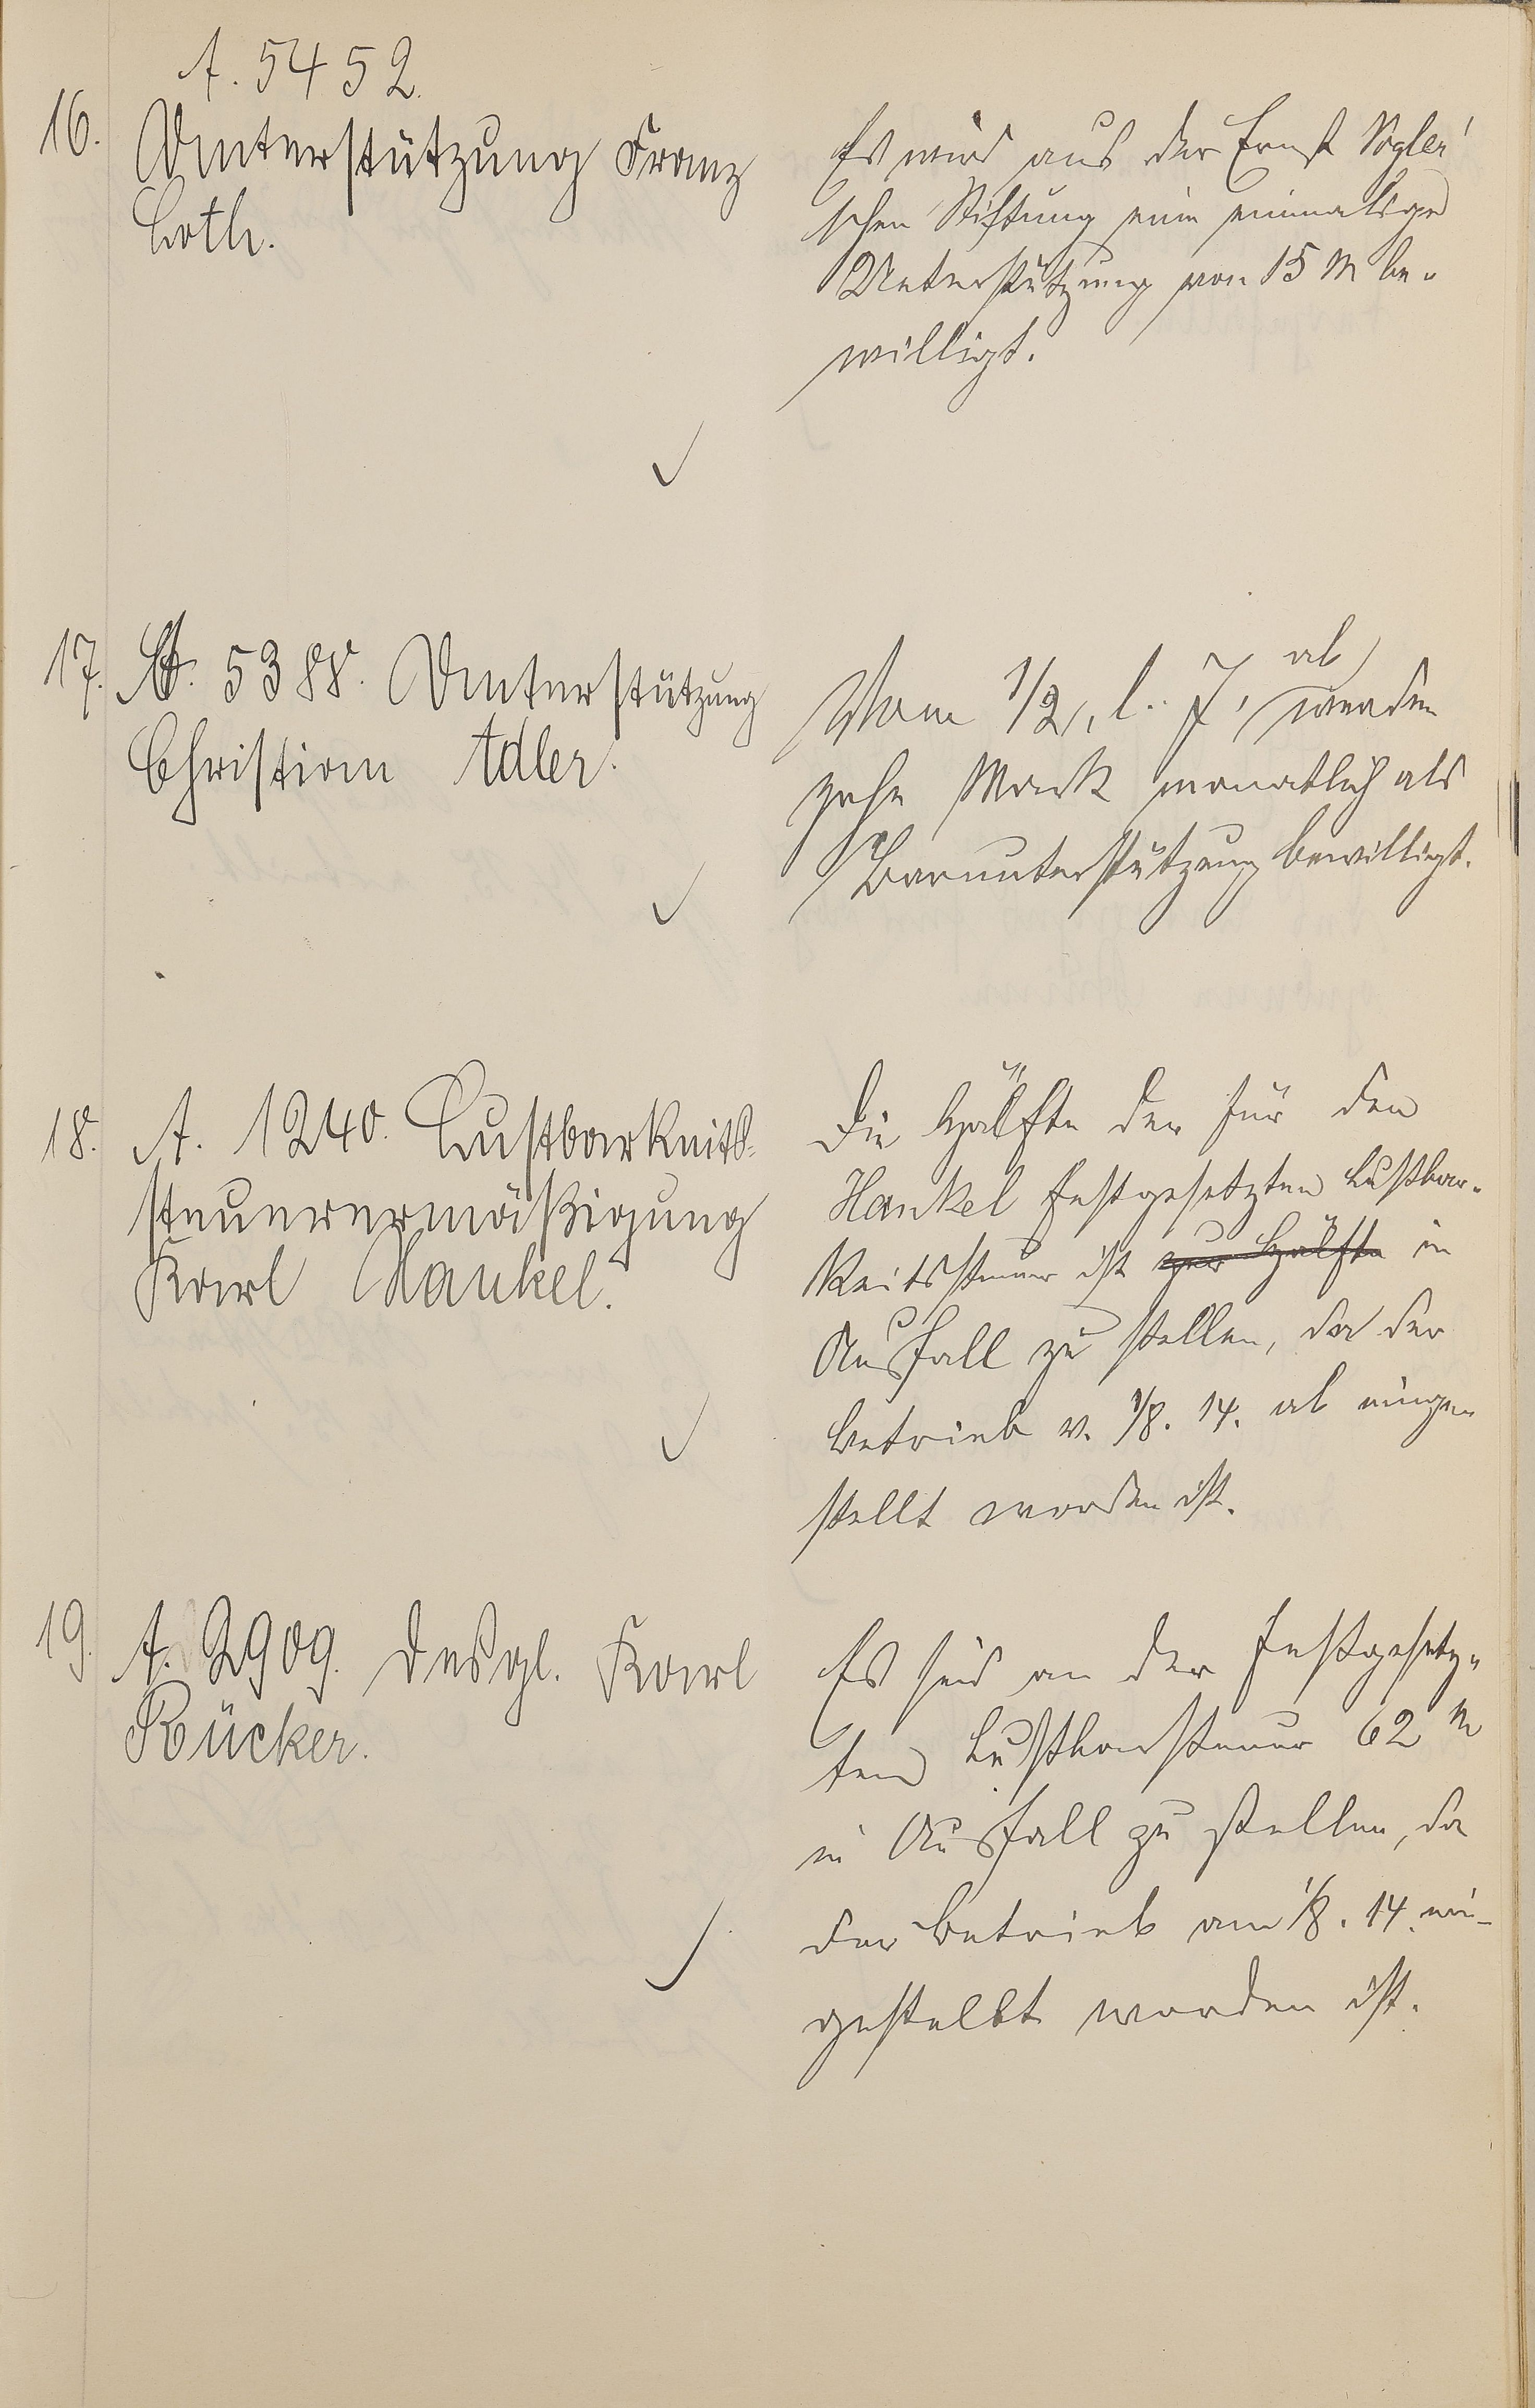 A. 5452.
16. Unterstützung Franz
Loth.
Es wird aus der Ernst Vogler'
schen Stiftung eine einmalige
Unterstützung von 15 M be-
willigt.
17. A. 5388. Unterstützung
Christian Adler.
Vom 1/2, l. J, ab werden
zehn Mark monatlich als
Barunterstützung bewilligt.
18. A. 1240. Lustbarkeits-
steuerermäßigung
Karl Hankel.
Die Hälfte der für den
Hankel festgesetzten Lustbar-
keitssteuer ist zur Hälfte in
Ausfall zu stellen, da der
Betrieb v. 1/8. 14. ab einge-
stellt worden ist.
19. A. 2909. Desgl. Karl
Rücker.
Es sind an der festgesetz-
ten Lustbarsteuer 62 M
in Ausfall zu stellen, da
der Betrieb am 1/8. 14. ein-
gestellt worden ist.